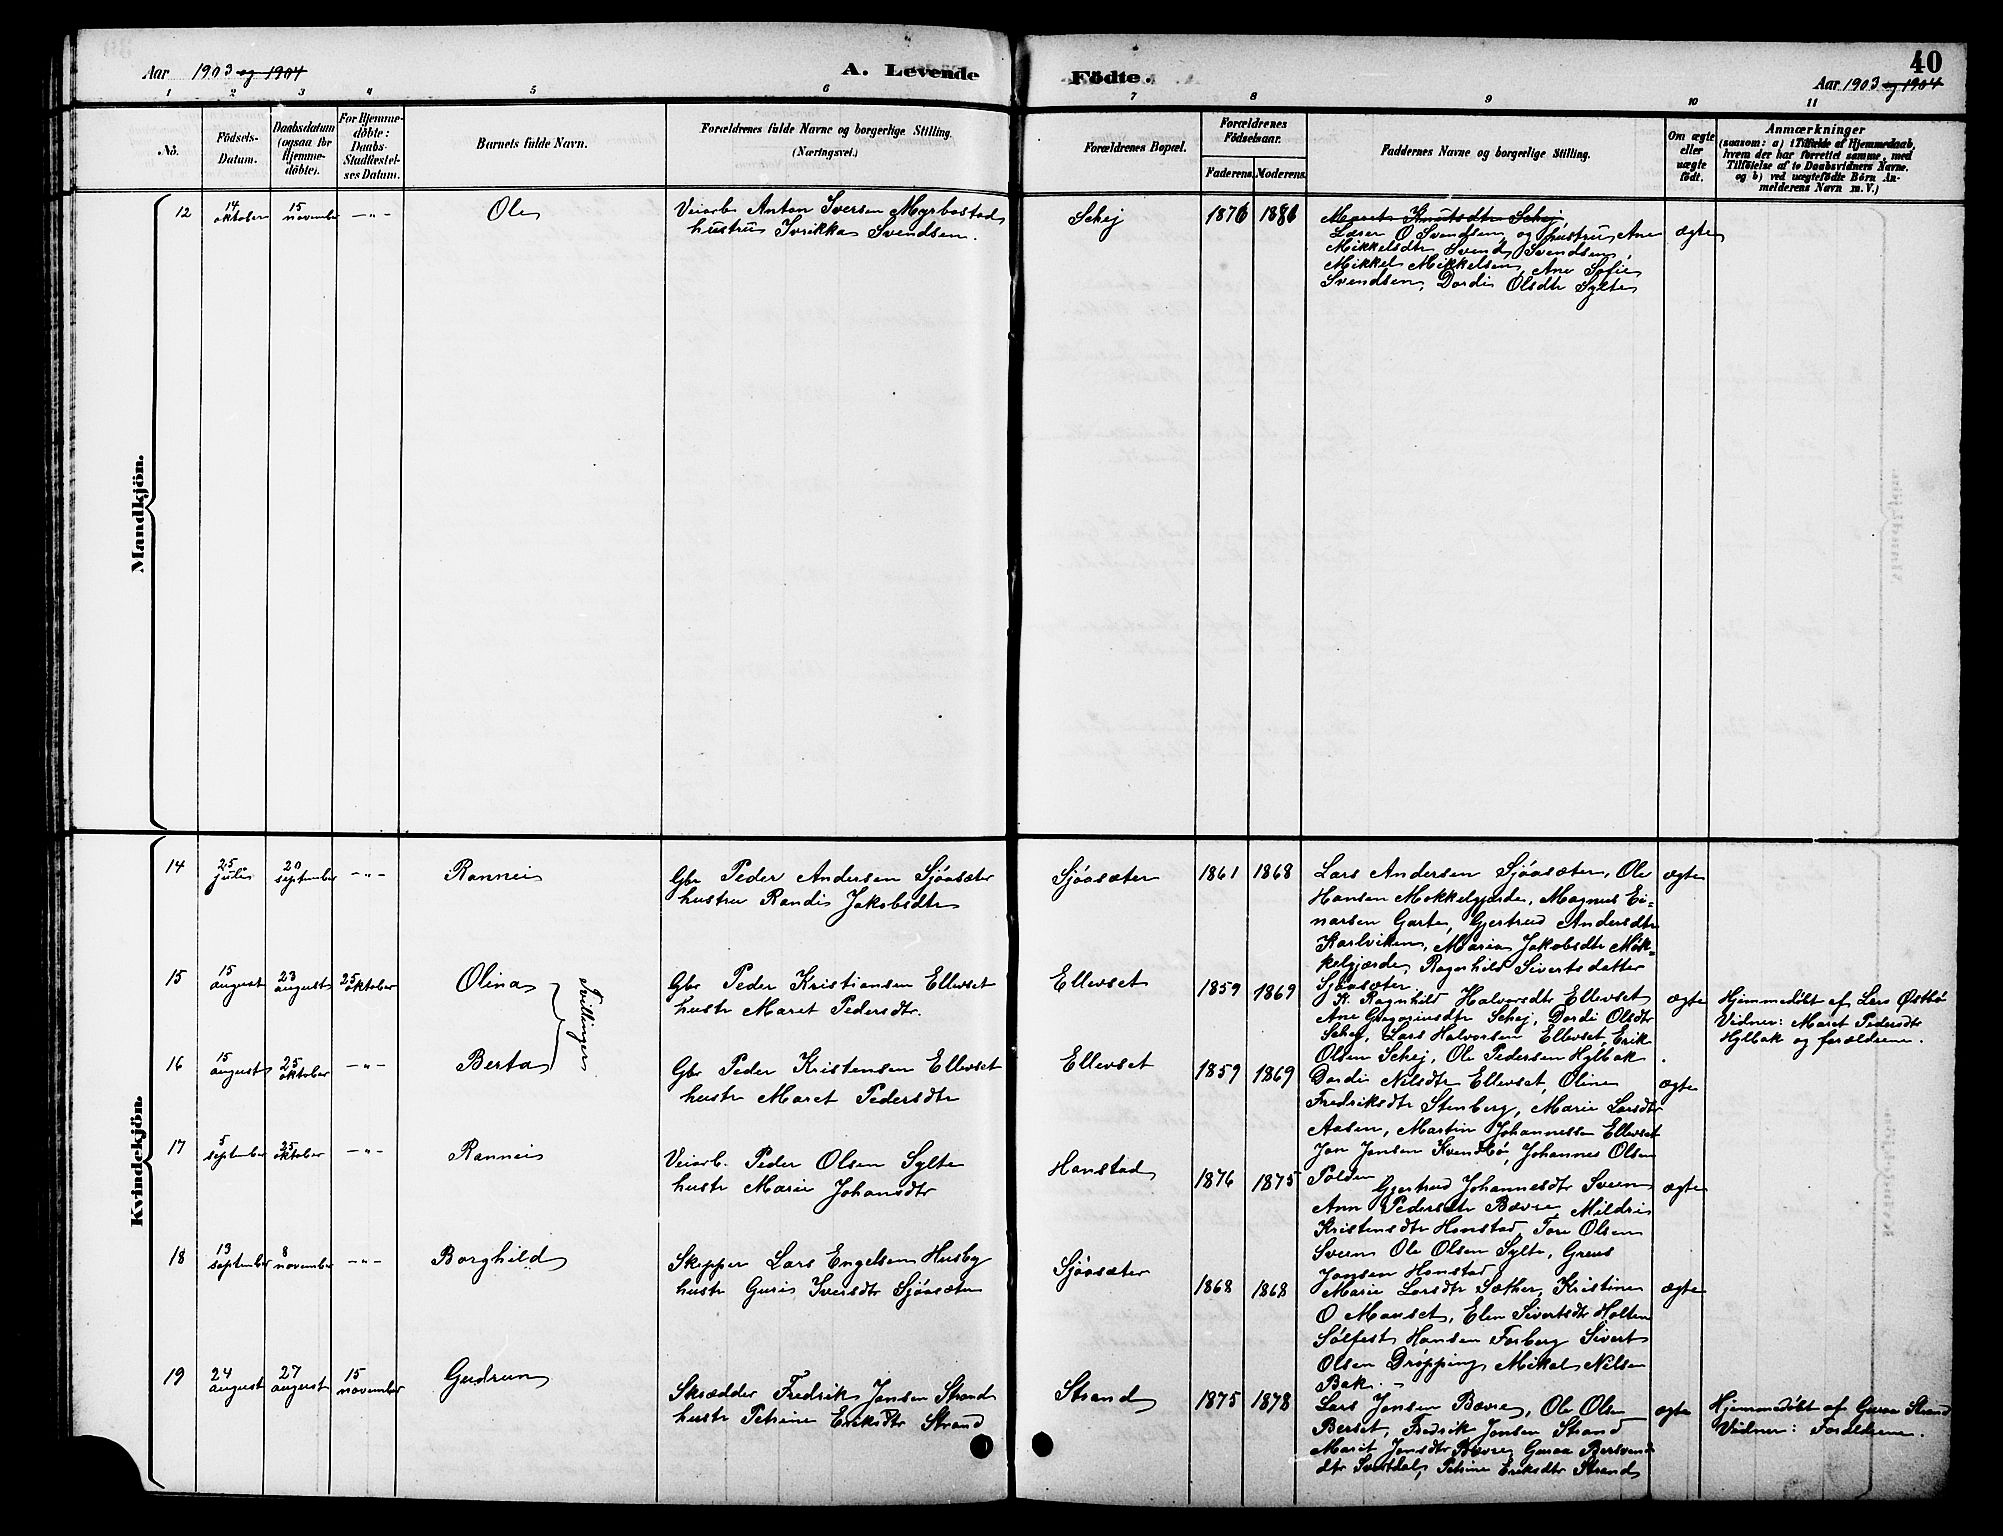 Aar 1903 og 1904
A. Levende
Födte.
40
Aar 1903 og 1904
1 2 3 4 5 6 7 8 9 10 11
No.
Födsels-
Datum.
Daabsdatum
(ogsaa for
Hjemme-
döbte).
For Hjemme-
döbte:
Daabs-
Stadfæstel-
ses Datum.
Barnets fulde Navn.
Forældrenes fulde Navne og borgerlige Stilling.
(Næringsvei.)
Forældrenes Bopæl.
Forældrenes
Födselsaar.
Faderens. Moderens.
Faddernes Navne og borgerlige Stilling.
Om ægte
eller
uægte
födt.
Anmærkninger
(saasom: a) i Tilfælde af Hjemmedaab,
hvem der har forrettet samme, med
Tilföielse af to Daabsvidners Navne,
og b) ved uægtefödte Börn An-
melderens Navn m. V.)
Mandkjön.
12
14 oktober
15 november
-"-
Ole
Veiarb Anton Iversen Myrbostad
hustru Ivrikka Svendsen.
Schej
1876 1881
Maret Knutsdtr Schej,
Lærer O Svendsen og hustru Ane
Mikkelsdtr Svend Svendsen,
Mikkel Mikkelsen, Ane Sofie
Svendsen, Dordi Olsdtr Sylte
ægte
Kvindekjön.
14
25 juli
20 september
-"-
Rannei
Gbr Peder Andersen Sjøasæter
hustru Randi Jakobsdtr
Sjøasæter
1861 1868
Lars Andersen Sjøasæter, Ole
Hansen Mokkelgjerde, Magnus Ei-
narsen Garte, Gjertrud Andersdtr
Karlviken, Maria Jakobsdtr Mok-
kelgjærde, Ragnhild Sivertsdatter
Sjøasæter
ægte
15
15 august
23 august
25 oktober
Olina
Tvillinger
Gbr Peder Kristiansen Ellevset
hustr Maret Pedersdtr.
Ellevset
1859 1869
K. Ragnhild Halvorsdtr Ellevset
Ane Gregoriusdtr Schej, Dordi Olsdtr
Schej, Lars Halvorsen Ellevset, Erik
Olsen Schej, Ole Pedersen Hylbak
ægte
Hjemmedöbt af Lars Østbø
Vidner: Maret Pedersdtr
Hylbak og forældrene.
16
15 august
25 oktober
-"-
Berta
Gbr Peder Kristensen Ellevset
hustr Maret Pedersdtr
Ellevset
1859 1869
Dordi Nilsdtr Ellevset, Oline
Fredriksdtr Stenberg, Marie Larsdtr
Aasen, Martin Johannessen Ellevset
Jon Jonsen Kvendbø, Johannes Olsen
Polden
ægte
17
5 september
25 oktober
-"-
Rannei
Veiarb. Peder Olsen Sylte
hustr Marie Johansdtr
Hanstad
1876 1875
Gjertrud Johannesdtr Sveen
Ann Pedersdtr Bævre, Mildri
Kristensdtr Honstad Tore Olsen
Sveen Ole Olsen Sylte,
Jonsen Honstad
ægte
18
13 september
8 november
-"-
Borghild
Skipper Lars Engelsen Husby
hustr Guri Iversdtr Sjøasæter
Sjøasæter
1868 1868
Marie Larsdtr Sæther, Kristine
O Mauset, Elen Sivertsdtr Holten
Sølfest Hansen Forberg Sivert
Olsen Drøpping, Mikal Nilsen
Bak.
ægte
19
24 august
27 august
15 november
Gudrun
Skrædder Fredrik Jonsen Strand
hustr Petrine Eriksdtr Strand
Strand
1875 1878
Lars Jonsen Bævre, Ole Olsen
Berset, Fredrik Jonsen Strand
Marit Jonsdtr Bævre, Guroa
dtr Petrine Eriksdtr Strand
ægte
Hjemmedöbt af Guroa Strand
Vidner: Forældrene.